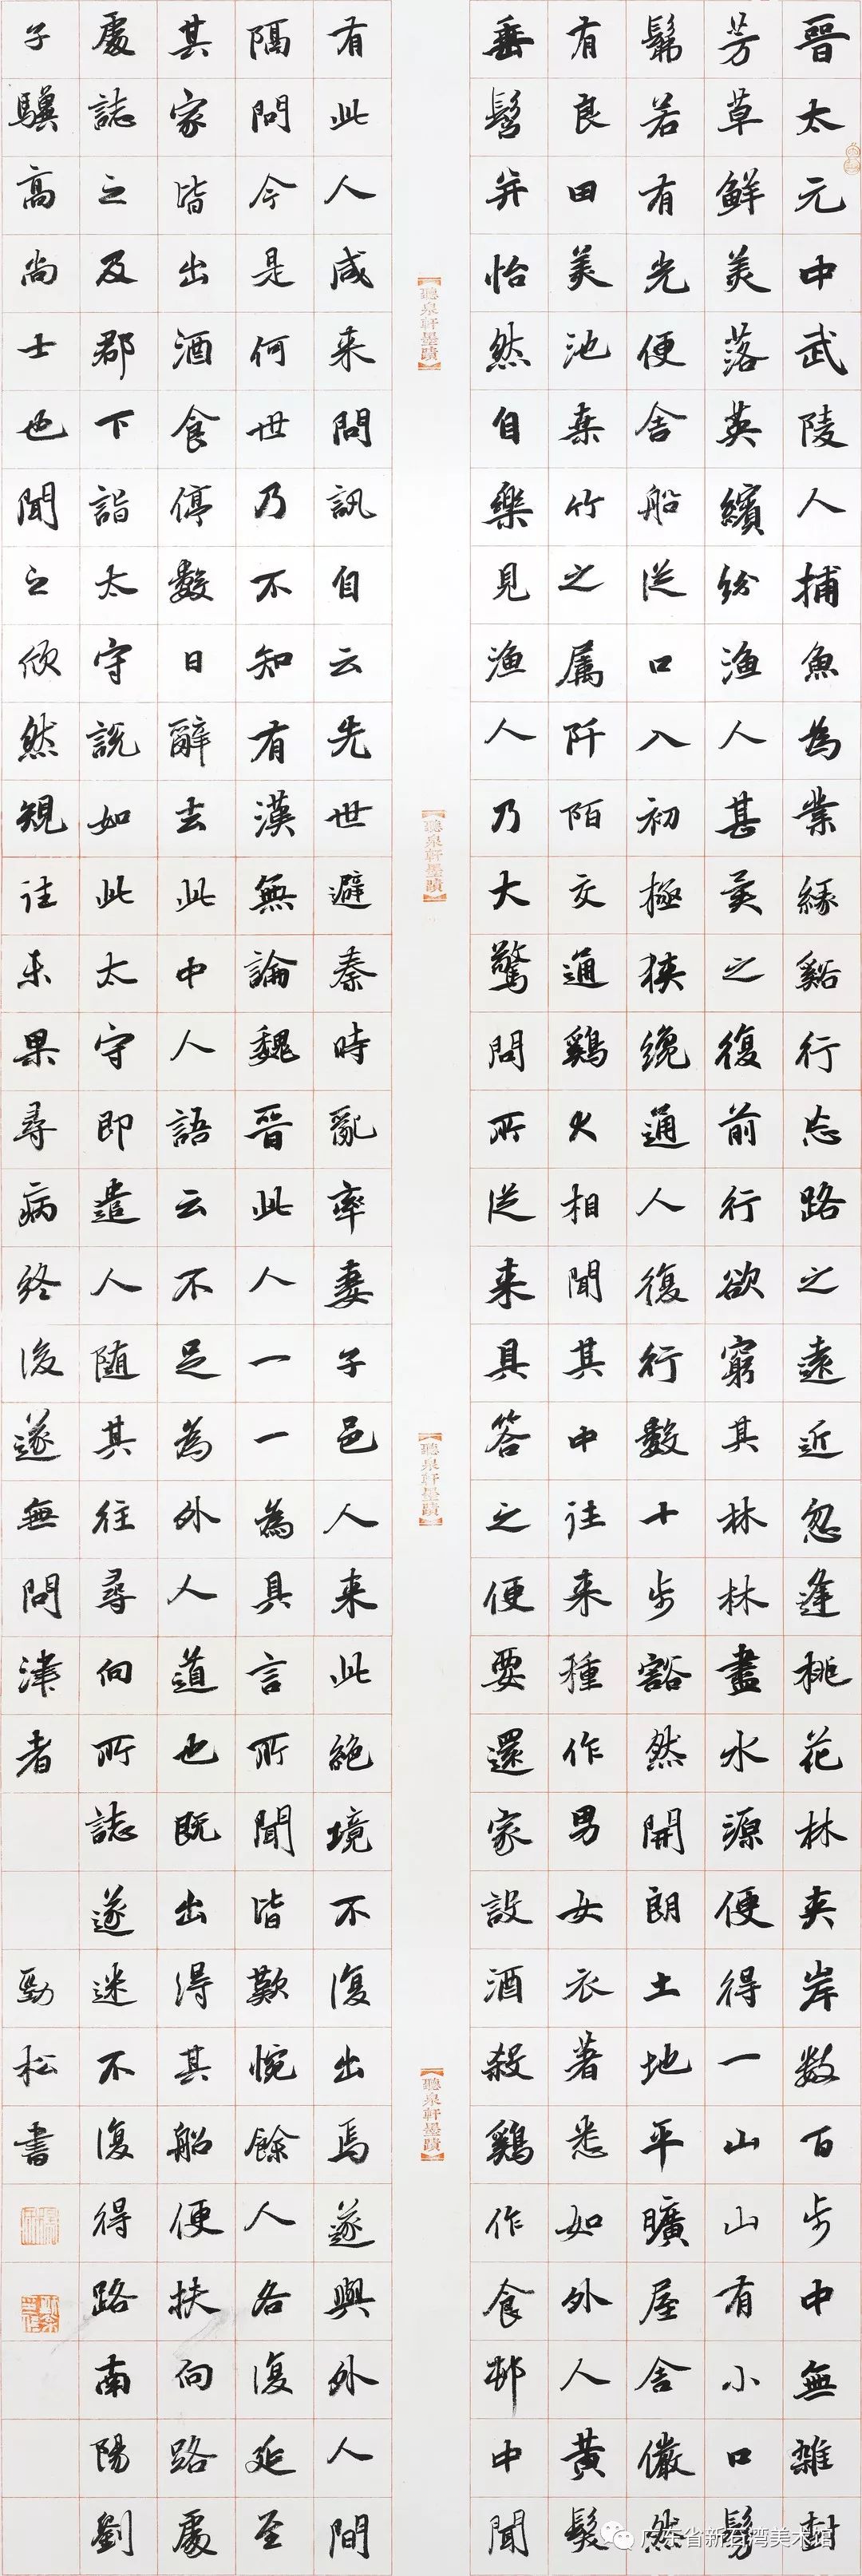 晉太元中武陵人捕魚為業緣谿行忘路之遠近忽逢桃花林夾岸数百步中無雜樹
芳草鮮美落英繽紛漁人甚異之復前行欲窮其林林盡水源便得一山山有小口髣
髴若有光便舍船從口入初極狹纔通人復行數十步豁然開朗土地平曠屋舍儼然
有良田美池桑竹之屬阡陌交通鷄犬相聞其中往来種作男女衣著悉如外人黃髮
垂髫并怡然自樂見漁人乃大驚問所從来具答之便要還家設酒殺鷄作食邨中聞
【聽泉軒墨蹟】
【聽泉軒墨蹟】
【聽泉軒墨蹟】
【聽泉軒墨蹟】
有此人咸来問訊自云先世避秦時亂率妻子邑人来此絕境不復出焉遂與外人間
隔問今是何世乃不知有漢無論魏晉此人一一為具言所聞皆歎惋餘人各復延至
其家皆出酒食停數日辭去此中人語云不足為外人道也既出得其船便扶向路處
處誌之及郡下詣太守說如此太守即遣人随其往尋向所誌遂迷不復得路南陽劉
子驥高尚士也聞之欣然規往未果尋病終後遂無問津者
勁松書
广东省新石湾美术馆